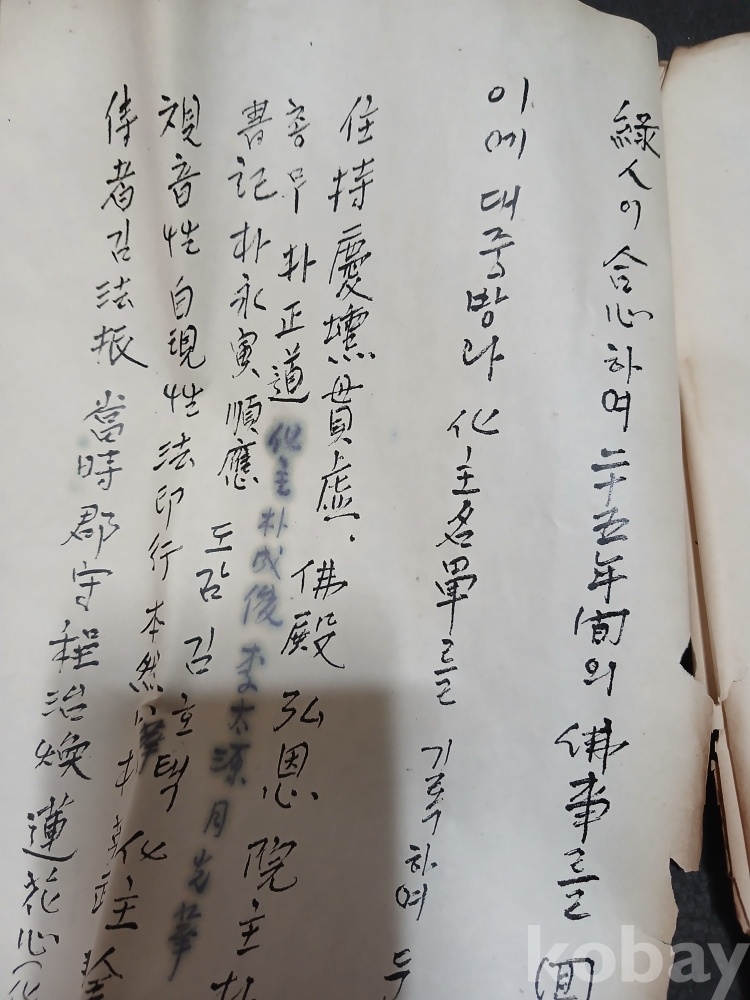 綠人이 合心하여 二十五年間의 佛事를 圓
이에 대중방나 化主名單를 기록하여 두
住持 慶壎 貫虛 佛殿 弘恩 院主 朴
총무 朴正道 化主 朴成俊 李太源 月光華
書記 朴永寅 順應 도감 김호택 化主
観音性 自現性 法印行 本然華
侍者 김法振 當時 郡守 程治煥 蓮花心
kobay